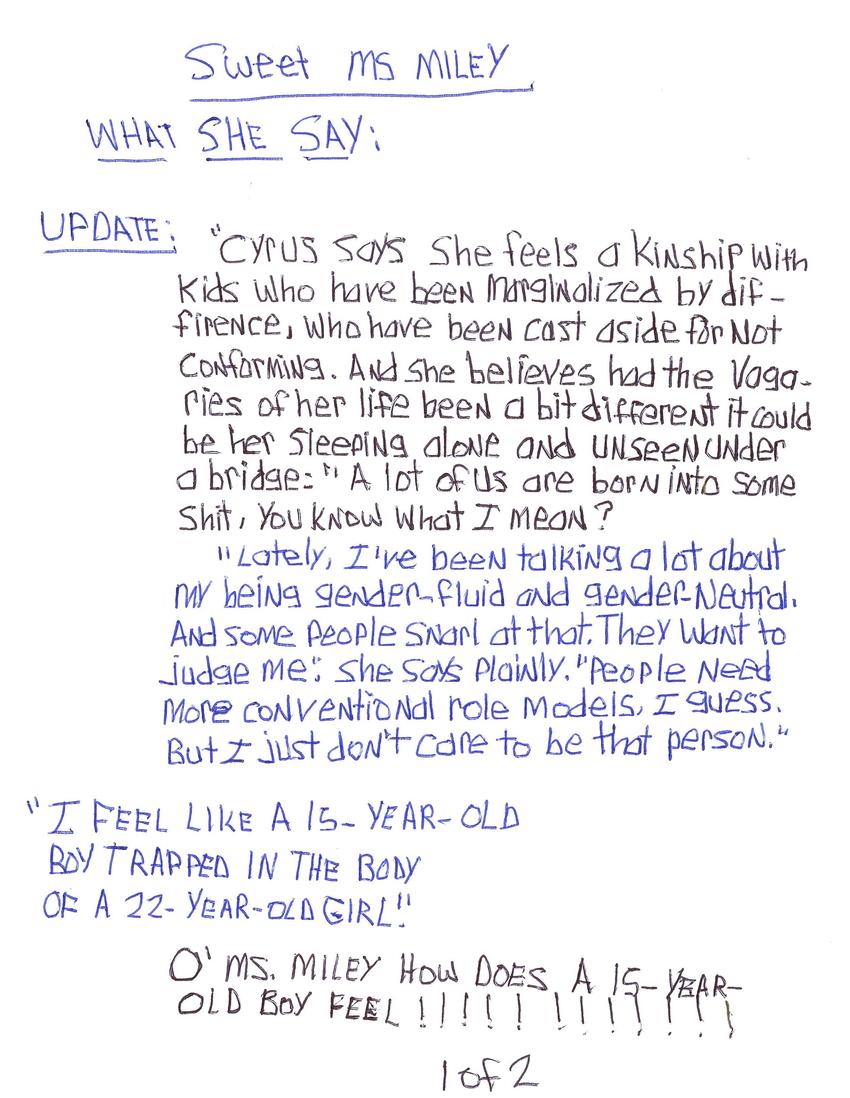 Sweet MS MILEY
WHAT SHE SAY:
UPDATE: "Cyrus says she feels a kinship with
kids who have been marginalized by dif-
firence, who have been cast aside for not
conforming. And she believes had the vaga-
ries of her life been a bit different it could
be her sleeping alone and unseen under
a bridge: " A lot of us are born into some
shit, you know what I mean?
"Lately, I've been talking a lot about
my being gender-fluid and gender-neutral.
And some people snarl at that. They want to
judge me", she says plainly. "People need
more conventional role models, I guess.
But I just don't care to be that person."
"I FEEL LIKE A 15-YEAR-OLD
BOY TRAPPED IN THE BODY
OF A 22-YEAR-OLD GIRL!"
O' MS. MILEY HOW DOES A 15-YEAR-
OLD BOY FEEL !!!!! !!!!!!!
1 of 2